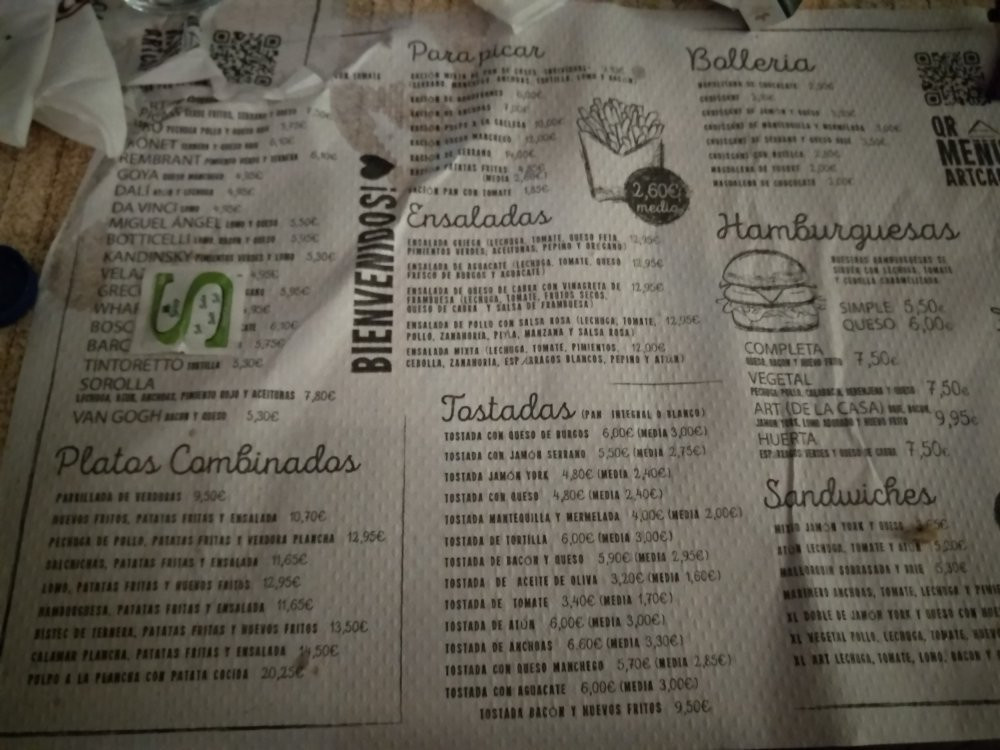 Para picar
7,00€
10,00€
12,00€
14,00€
(MEDIA 2,60€)
RACIÓN PAN CON TOMATE 1,85€
2,60€
media
Bolleria
NAPOLITANA DE CHOCOLATE
CROISSANT
CROISSANT DE JAMÓN Y QUESO
CROISSANT DE MANTEQUILLA Y MERMELADA 3,00€
CROISSANT DE SERRANO Y QUESO
CROISSANT CON NUTELLA
MAGDALENA DE YOGURT
MAGDALENA DE CHOCOLATE
QR
MENU
BIENVENIDOS!
PECHUGA POLLO Y QUESO
REMBRANT PIMIENTO VERDE Y TERNERA 6,10€
GOYA QUESO MANCHEGO 4,95€
DALÍ ATÚN Y LECHUGA 4,95€
DA VINCI LOMO 4,95€
MIGUEL ÁNGEL LOMO Y QUESO 5,50€
BOTTICELLI LOMO, BACON Y QUESO 5,95€
KANDINSKY PIMIENTOS VERDES Y LOMO 5,30€
4,95€
5,95€
6,10€
5,75€
TINTORETTO TORTILLA 5,30€
SOROLLA
LECHUGA, ATÚN, ANCHOAS, PIMIENTO ROJO Y ACEITUNAS 7,80€
VAN GOGH BACON Y QUESO 5,30€
Ensaladas
ENSALADA GRIEGA (LECHUGA, TOMATE, QUESO FETA, 12,95€
PIMIENTOS VERDES, ACEITUNAS, PEPINO Y ORÉGANO)
ENSALADA DE AGUACATE (LECHUGA, TOMATE, QUESO 12,95€
FRESCO DE BURGOS Y AGUACATE)
ENSALADA DE QUESO DE CABRA CON VINAGRETA DE 12,95€
FRAMBUESA (LECHUGA, TOMATE, FRUTOS SECOS,
QUESO DE CABRA Y SALSA DE FRAMBUESA)
ENSALADA DE POLLO CON SALSA ROSA (LECHUGA, TOMATE, 12,95€
POLLO, ZANAHORIA, PIÑA, MANZANA Y SALSA ROSA)
ENSALADA MIXTA (LECHUGA, TOMATE, PIMIENTOS, 12,00€
CEBOLLA, ZANAHORIA, ESPÁRRAGOS BLANCOS, PEPINO Y ATÚN)
Hamburguesas
NUESTRAS HAMBURGUESAS SE
SIRVEN CON LECHUGA, TOMATE
Y CEBOLLA CARAMELIZADA.
SIMPLE 5,50€
QUESO 6,00€
COMPLETA
QUESO, BACON Y HUEVO FRITO 7,50€
VEGETAL
PECHUGA POLLO, CALABACÍN, BERENJENA Y QUESO 7,50€
ART (DE LA CASA) BRIE, BACON,
JAMÓN YORK, LOMO ADOBADO Y HUEVO FRITO 9,95€
HUERTA
ESPÁRRAGOS VERDES Y QUESO DE CABRA 7,50€
Platos Combinados
PARRILLADA DE VERDURAS 9,50€
HUEVOS FRITOS, PATATAS FRITAS Y ENSALADA 10,70€
PECHUGA DE POLLO, PATATAS FRITAS Y VERDURA PLANCHA 12,95€
SALCHICHAS, PATATAS FRITAS Y ENSALADA 11,65€
LOMO, PATATAS FRITAS Y HUEVOS FRITOS 12,95€
HAMBURGUESA, PATATAS FRITAS Y ENSALADA 11,65€
BISTEC DE TERNERA, PATATAS FRITAS Y HUEVOS FRITOS 13,50€
CALAMAR PLANCHA, PATATAS FRITAS Y ENSALADA 14,50€
PULPO A LA PLANCHA CON PATATA COCIDA 20,25€
Tostadas (PAN INTEGRAL O BLANCO)
TOSTADA CON QUESO DE BURGOS 6,00€ (MEDIA 3,00€)
TOSTADA CON JAMÓN SERRANO 5,50€ (MEDIA 2,75€)
TOSTADA JAMÓN YORK 4,80€ (MEDIA 2,40€)
TOSTADA CON QUESO 4,80€ (MEDIA 2,40€)
TOSTADA MANTEQUILLA Y MERMELADA 4,00€ (MEDIA 2,00€)
TOSTADA DE TORTILLA 6,00€ (MEDIA 3,00€)
TOSTADA DE BACON Y QUESO 5,90€ (MEDIA 2,95€)
TOSTADA DE ACEITE DE OLIVA 3,20€ (MEDIA 1,60€)
TOSTADA DE TOMATE 3,40€ (MEDIA 1,70€)
TOSTADA DE ATÚN 6,00€ (MEDIA 3,00€)
TOSTADA DE ANCHOAS 6,60€ (MEDIA 3,30€)
TOSTADA CON QUESO MANCHEGO 5,70€ (MEDIA 2,85€)
TOSTADA CON AGUACATE 6,00€ (MEDIA 3,00€)
TOSTADA BACON Y HUEVOS FRITOS 9,50€
Sandwiches
MIXTO JAMÓN YORK Y QUESO
ATÚN LECHUGA, TOMATE Y ATÚN 5,00€
MALLORQUÍN SOBRASADA Y BRIE 5,30€
MARINERO ANCHOAS, TOMATE, LECHUGA Y
XL DOBLE DE JAMÓN YORK Y QUESO CON
XL VEGETAL POLLO, LECHUGA, TOMATE,
XL ART LECHUGA, TOMATE, LOMO, BACON Y